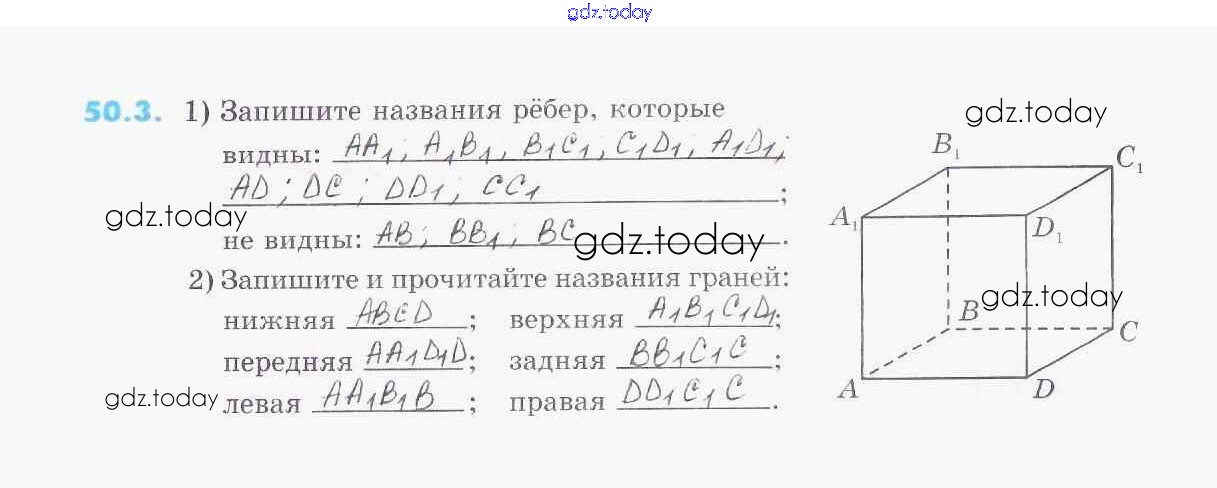 gdz.today
50.3. 1) Запишите названия рёбер, которые
gdz.today
видны: AA₁; A₁B₁, B₁C₁; C₁D₁; A₁D₁;
AD; DC; DD₁; CC₁;
gdz.today
не видны: AB; BB₁; BC.
gdz.today
2) Запишите и прочитайте названия граней:
нижняя ABCD; верхняя A₁B₁C₁D₁;
передняя AA₁D₁D; задняя BB₁C₁C;
левая AA₁B₁B; правая DD₁C₁C.
gdz.today
gdz.today
B₁
C₁
A₁
D₁
B
C
A
D